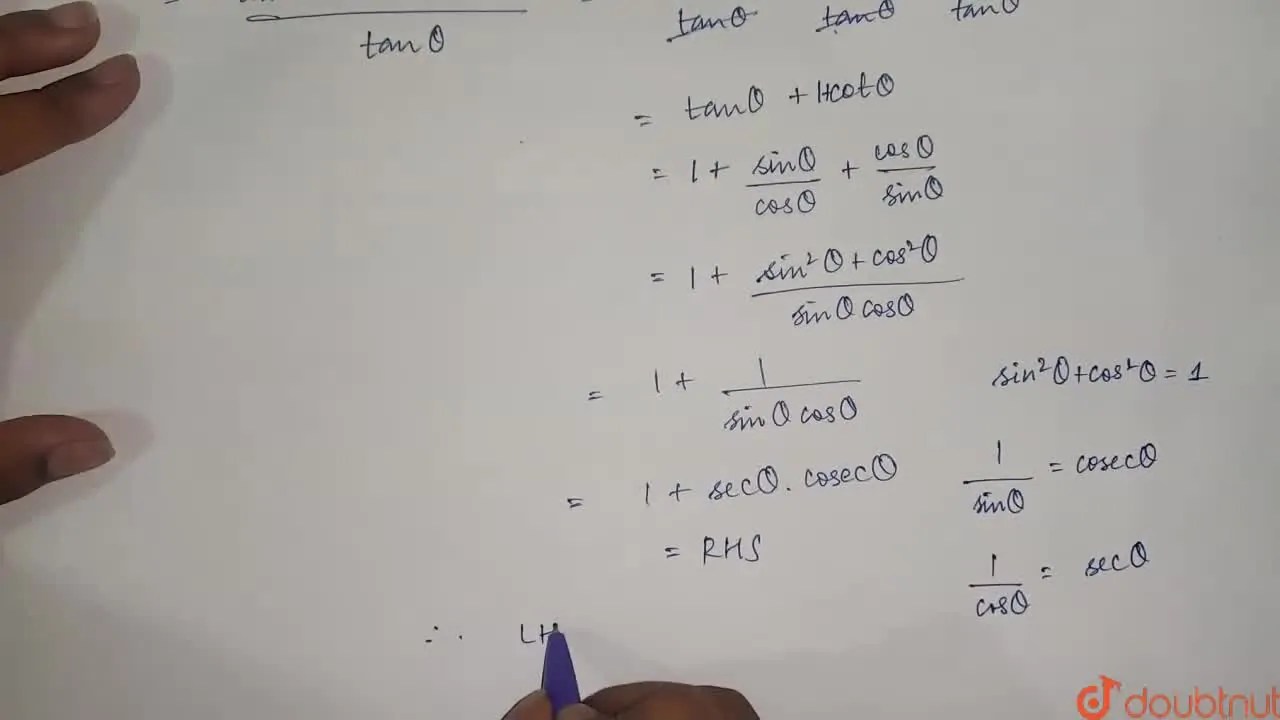 tanθ tanθ tanθ tanθ
= tanθ + 1+cotθ
= 1 + sinθ/cosθ + cosθ/sinθ
= 1 + sin²θ + cos²θ/sinθ cosθ
= 1 + 1/sinθ cosθ
sin²θ + cos²θ = 1
= 1 + secθ . cosecθ
1/sinθ = cosecθ
= RHS
1/cosθ = secθ
∴ LH
doubtnut